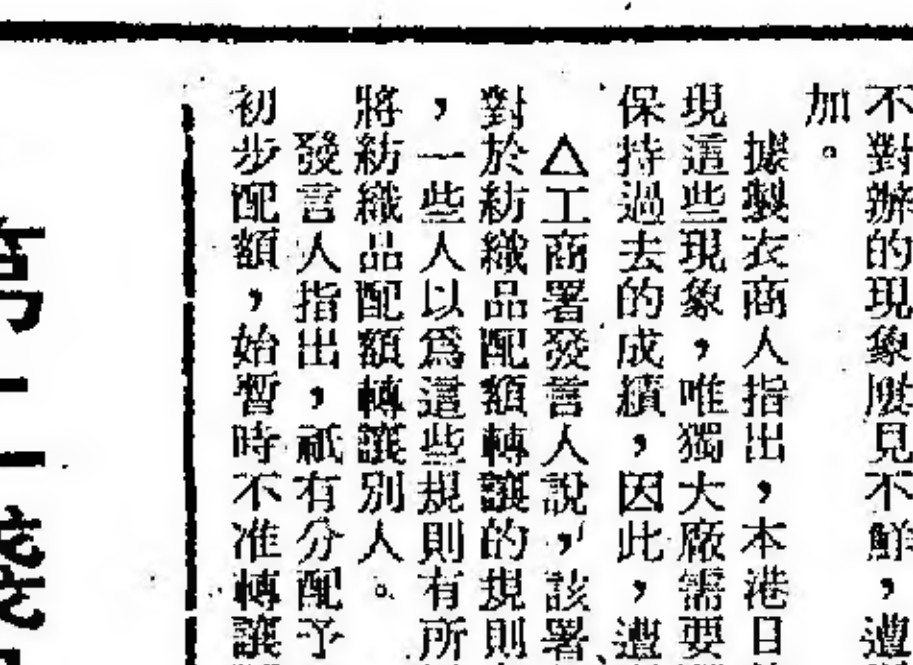 不對辦的現象屢見不鮮，遭
加。
據製衣商人指出，本港日
現這些現象，唯獨大廠需要
保持過去的成績，因此，遭
△工商署發言人說，該署
對於紡織品配額轉讓的規則
，一些人以爲這些規則有所
將紡織品配額轉讓別人。
發言人指出，祇有分配予
初步配額，始暫時不准轉讓
第二